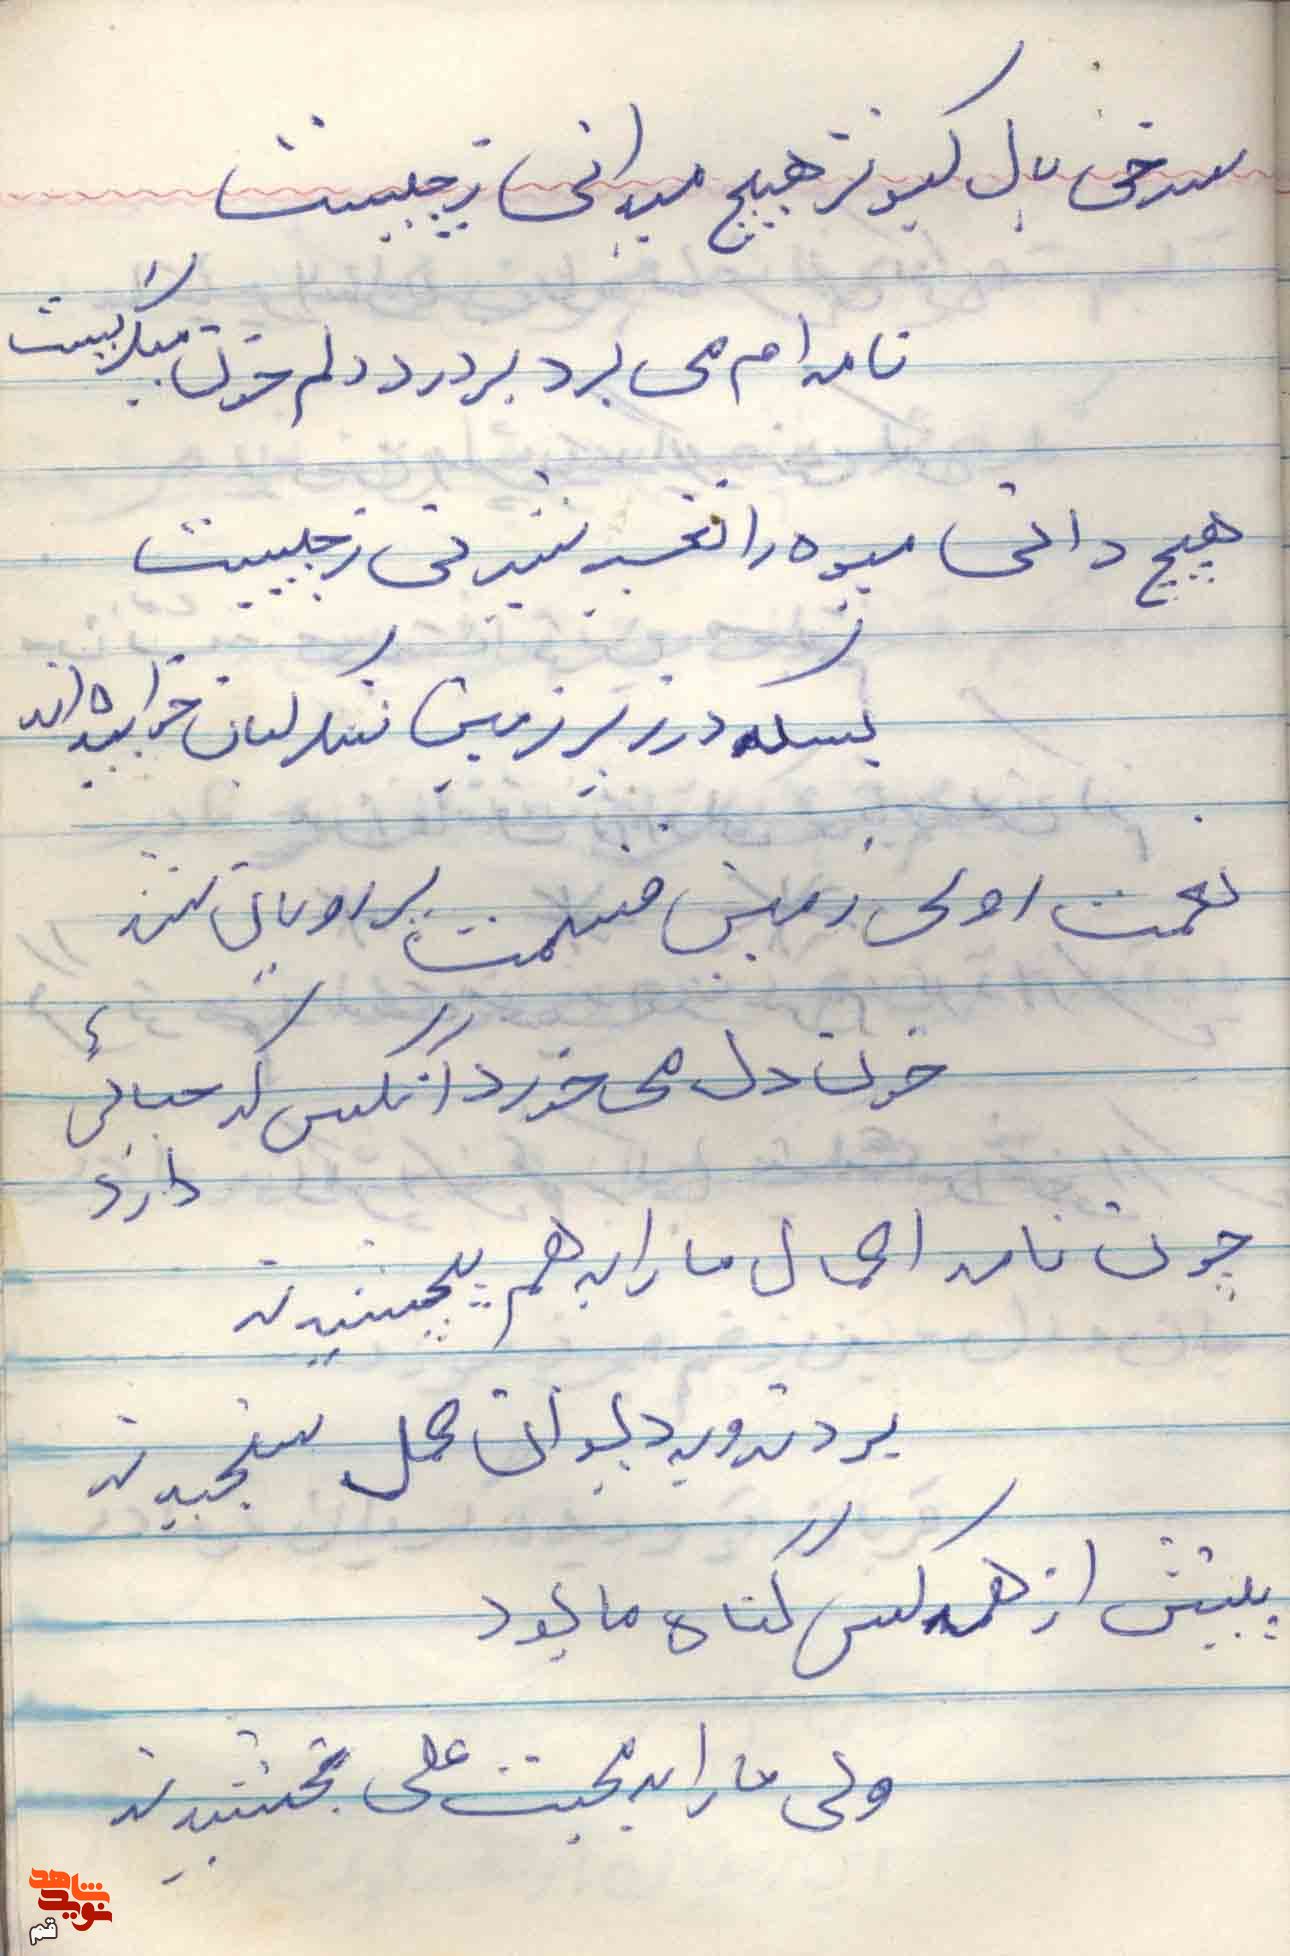 سرخی بال کبوتر هیچ میدانی زچیست
نامه ام می برد بر درد دلم خون میگریست
هیچ دانی میوه را تخسیر شیرنی زچیست
بسکه در زیر زمین شکر لبان خوابیده اند
نعمت روی زمین قسمت پر رویان شد
خون دل می خورد آنکس که حیائی
دارد
چون نامه اعمال ما را بهم پیچیدند
بردند و به دیوان عمل سنجیدند
بیش از همه کس گناه ما بود
ولی ما را به محبت علی بخشیدند
نوید شاهد
قم